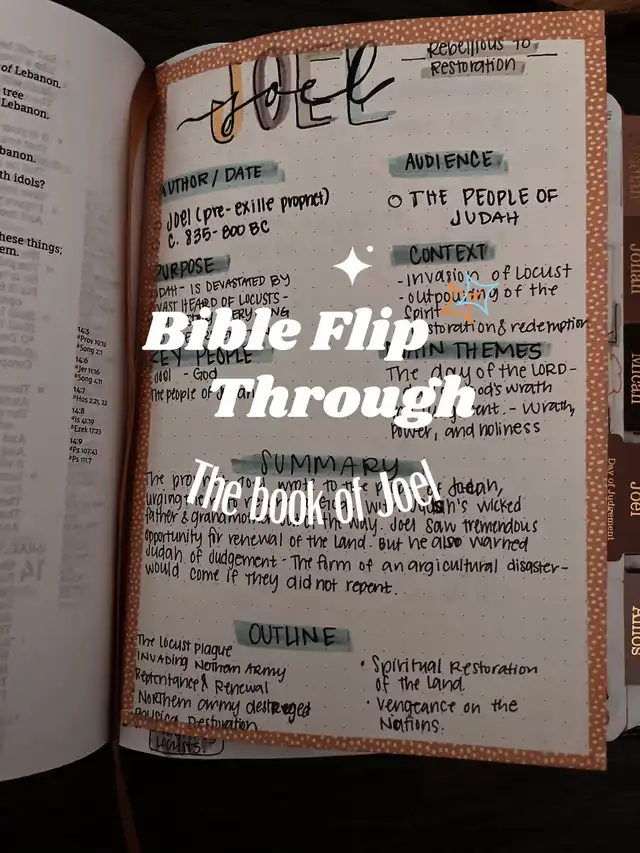 of Lebanon.
tree
Lebanon.
banon.
th idols?
hese things;
em.
14:5
Prov 19:12
Song 2:1
14:6
Jer 11:16
Song 4:11
14:7
Hos 2:21, 22
14:8
Is 41:19
Ezek 17:23
14:9
Ps 107:43
Ps 111:7
14
JOEL
Joel
Rebellious to
Restoration
AUTHOR / DATE
Joel (pre-exille prophet)
C. 835-800 BC
AUDIENCE
THE PEOPLE OF
JUDAH
PURPOSE
JUDAH - IS DEVASTATED BY
VAST HEARD OF LOCUSTS -
CONTEXT
- Invasion of Locust
- outpouring of the
Spirit
restoration & redemption
KEY PEOPLE
Joel - God
The people of
MAIN THEMES
The day of the LORD -
God's wrath
- Wrath,
power, and holiness
Bible Flip
Through
The book of Joel
SUMMARY
The wrote to the Judah,
urging
father & grandmother the way. Joel saw tremendous
opportunity for renewal of the land. But he also warned
Judah of Judgement - The form of an argicultural disaster -
would come if they did not repent.
OUTLINE
The Locust Plague
Invading Nothern Army
Repentance & Renewal
Northern army destroyed
Physical Restoration
• Spiritual Restoration
of the Land.
• Vengeance on the
Nations.
Locusts
Jonah
Micah
Joel
Day of Judgement
Amos